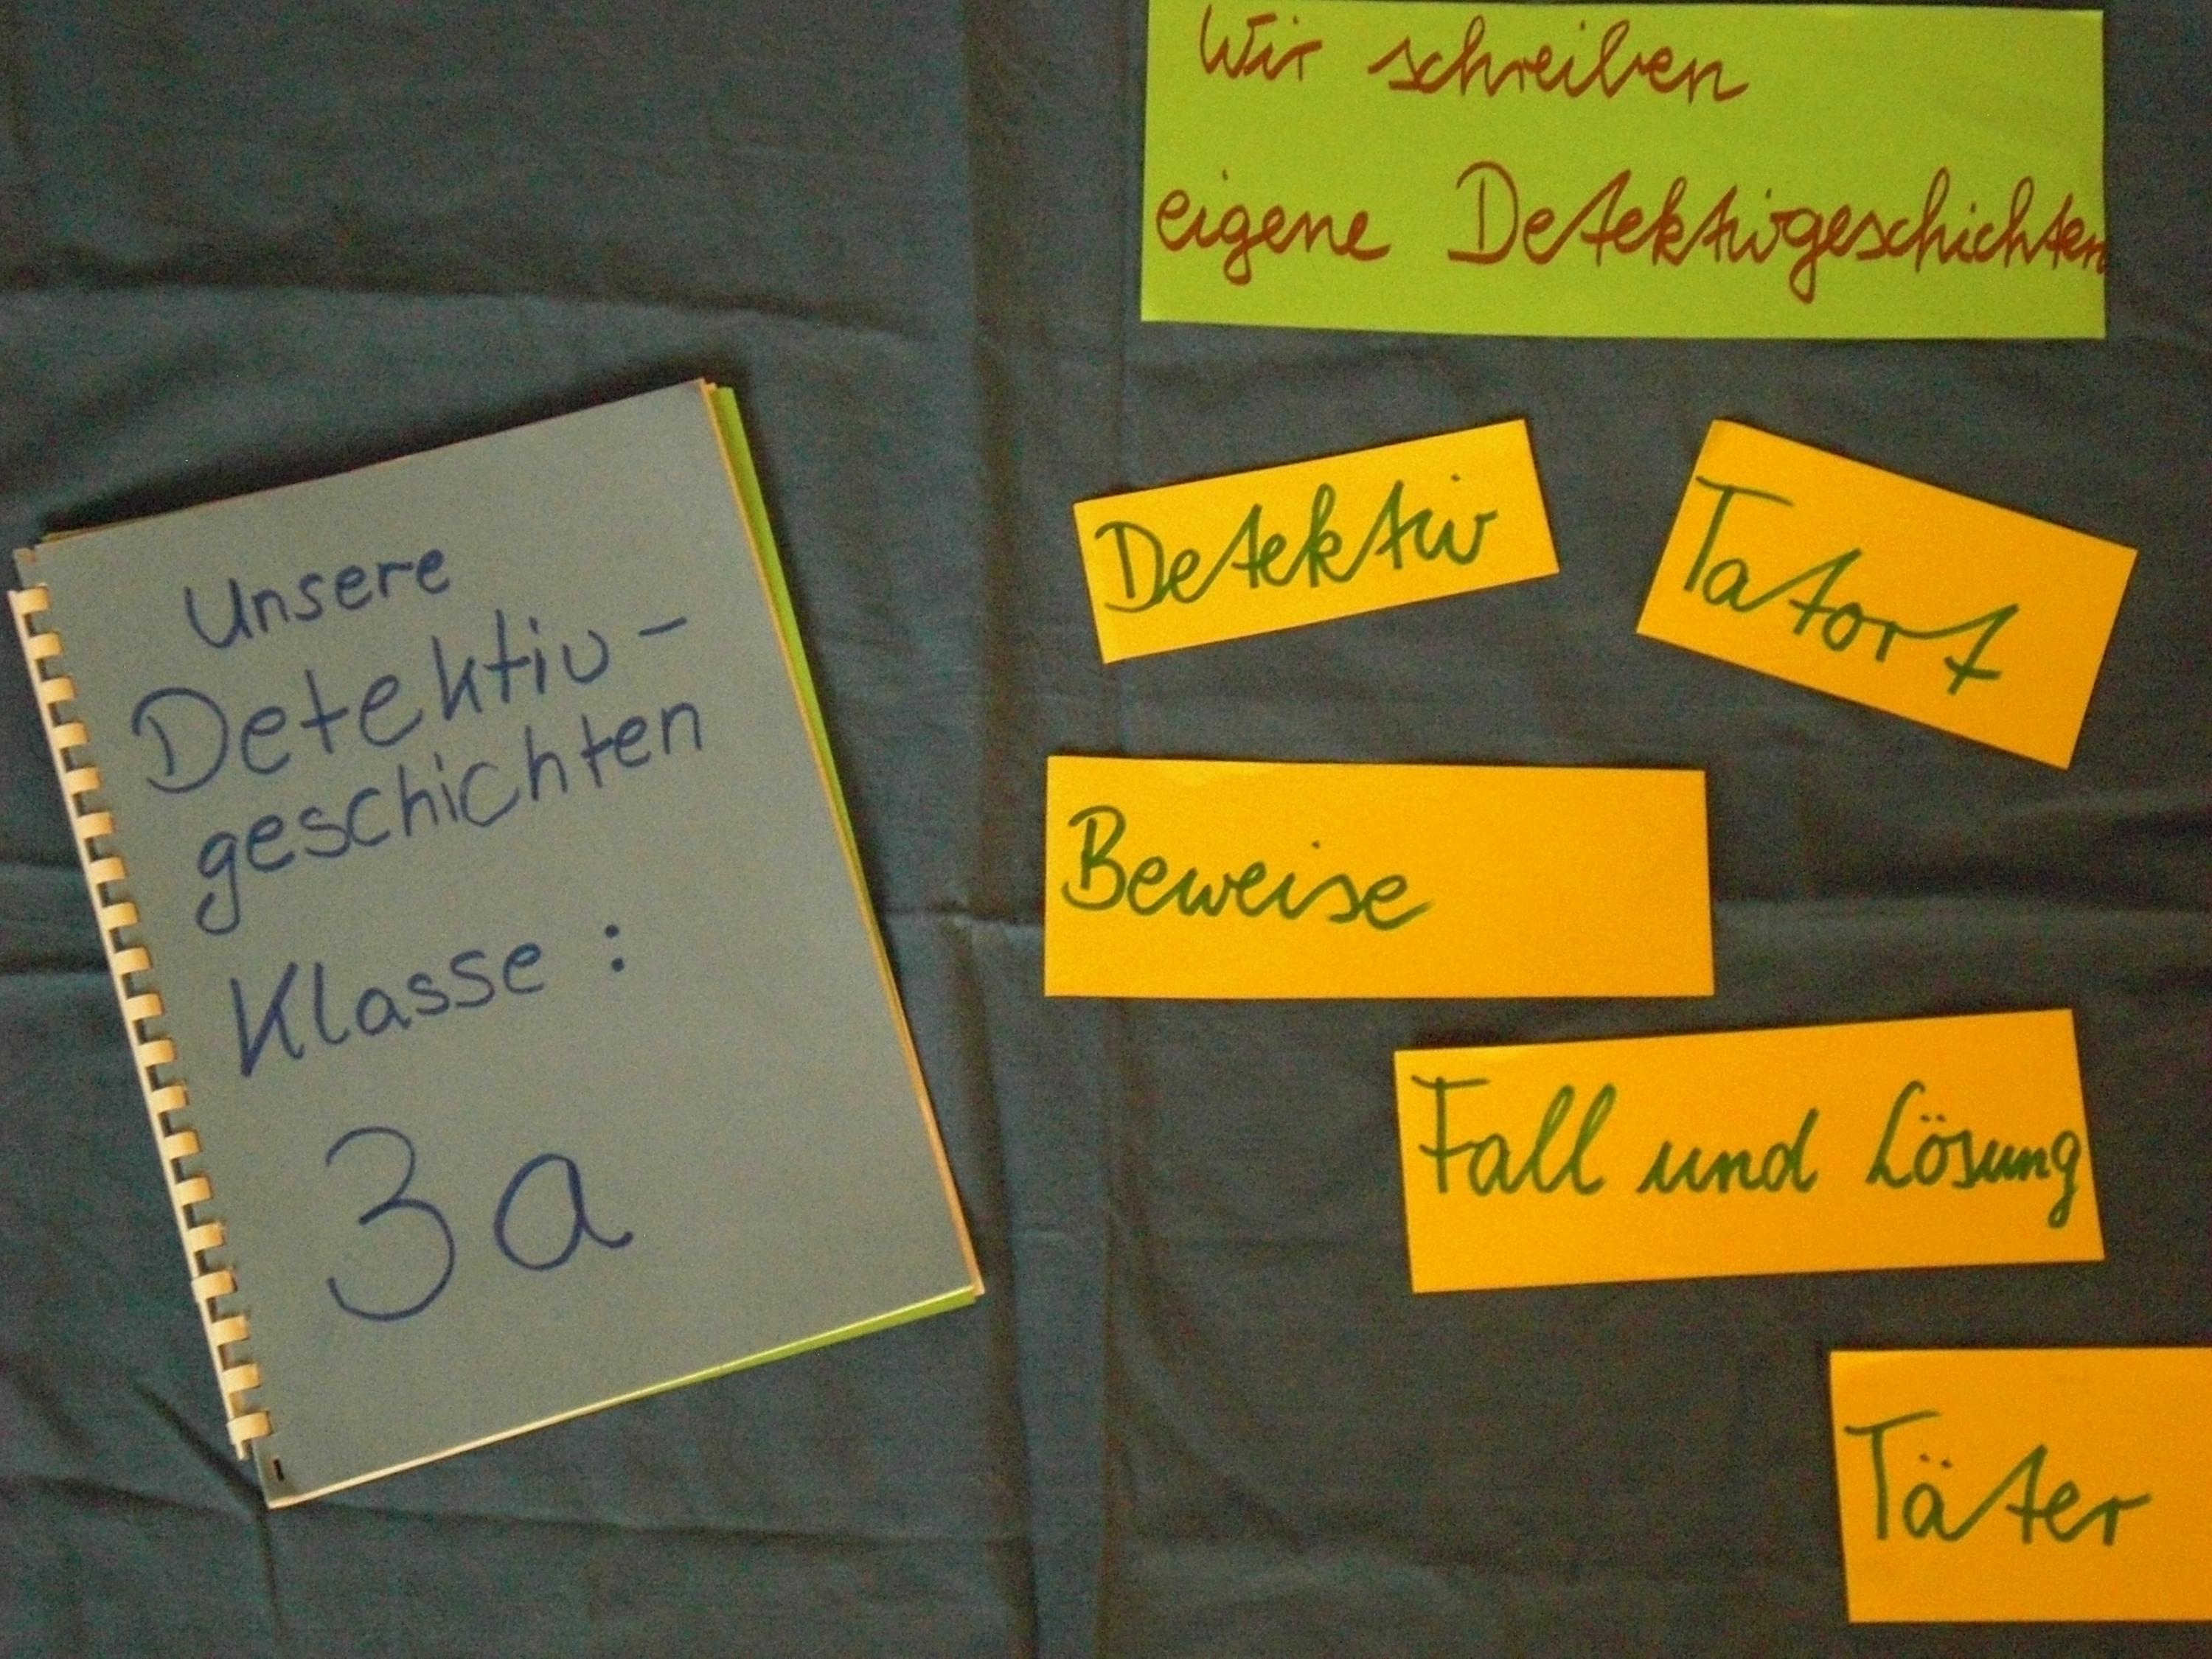 Wir schreiben
eigene Detektivgeschichten
Unsere
Detektiv-
geschichten
Klasse:
3a
Detektiv
Tatort
Beweise
Fall und Lösung
Täter